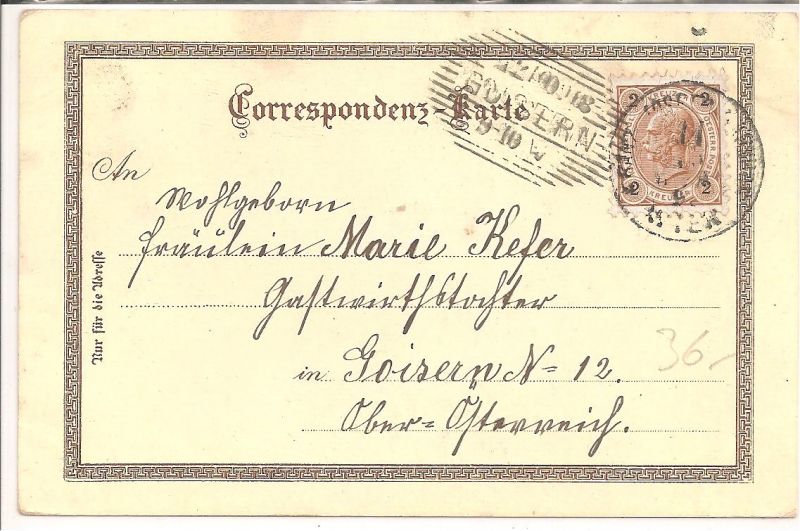 Correspondenz-Karte
An
Wohlgeborn
Fräulein Marie Kefer
Gastwirthstochter
in Goisern No 12.
Ober=Österreich.
Nur für die Adresse
GOISERN
9-10 W
2 2
2 2
KREUZER
36.-